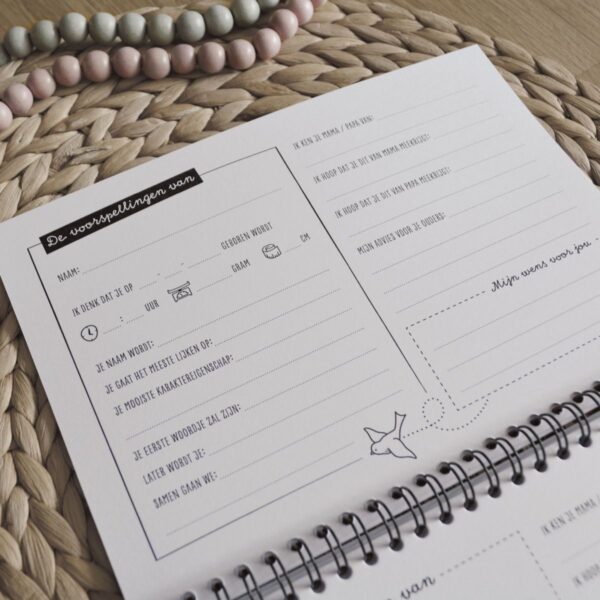 De voorspellingen van
NAAM:
IK DENK DAT JE OP . . . - . . . - . . . GEBOREN WORDT
: UUR GRAM CM
JE NAAM WORDT:
JE GAAT HET MEESTE LIJKEN OP:
JE MOOISTE KARAKTEREIGENSCHAP:
JE EERSTE WOORDJE ZAL ZIJN:
LATER WORDT JE:
SAMEN GAAN WE:
IK KEN JE MAMA / PAPA VAN:
IK HOOP DAT JE DIT VAN MAMA MEEKRIJGT:
IK HOOP DAT JE DIT VAN PAPA MEEKRIJGT:
MIJN ADVIES VOOR JE OUDERS:
Mijn wens voor jou
IK KEN JE MAMA /
van